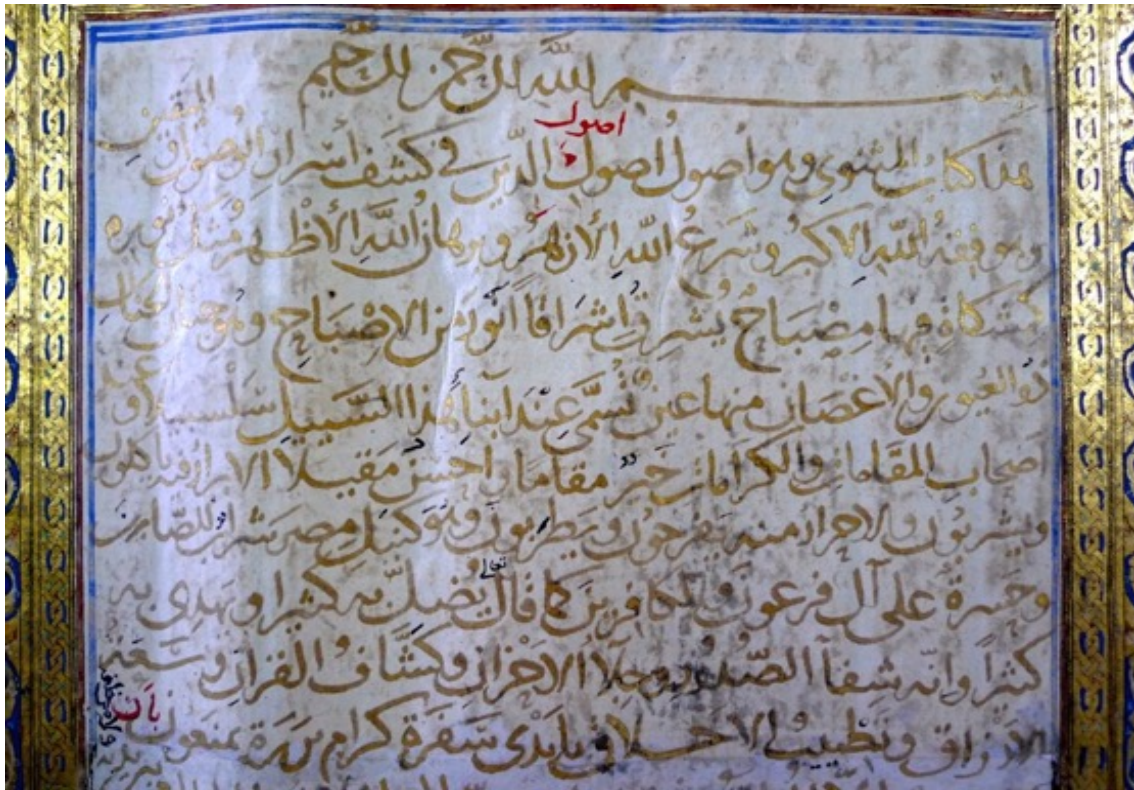 بســــم الله الرحمن الرحيم
اصول
هذا كتاب المثنوي وهو اصول اصول الدين في كشف أسرار الوصول واليقين
وهو فقه الله الاكبر وشرع الله الأزهر وبرهان الله الأظهر مثل نوره
كمشكاة فيها مصباح يشرق اشراقا انور من الاصباح وهو جنان الجنان
ذو العيون والأغصان منها عين تسمى عند ابناء هذا السبيل سلسبيلا وعند
اصحاب المقامات والكرامات خير مقاما واحسن مقيلا الابرار فيه ياكلون
ويشربون والاحرار منه يفرحون ويطربون وهو كنيل مصر شراب للصابرين
وحسرة على آل فرعون والكافرين كما قال تعالى يضل به كثيرا ويهدي به
كثيرا وانه شفآ الصدور وجلآ الاحزان وكشاف القرآن وسعة
الارزاق وتطييب الاخلاق بايدى سفرة كرام بررة يمنعون بان